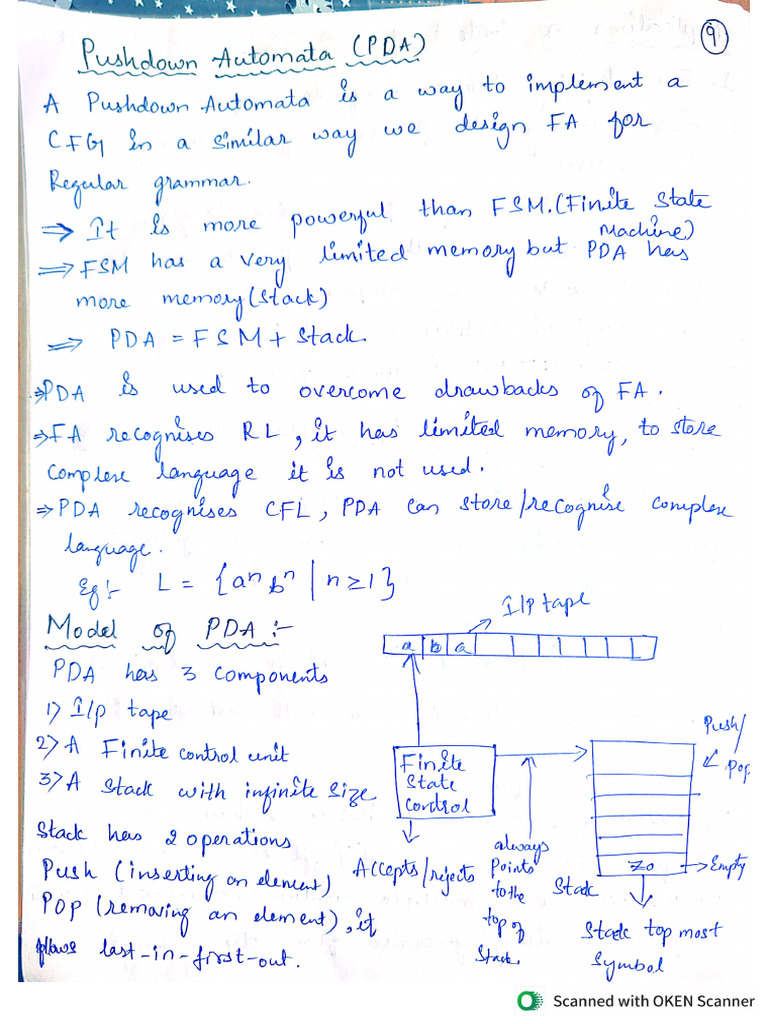 9
Pushdown Automata (PDA)
A Pushdown Automata is a way to implement a
CFG in a similar way we design FA for
Regular grammar.
⇒ It is more powerful than FSM.(Finite State
Machine)
⇒ FSM has a very limited memory but PDA has
more memory(stack)
⇒ PDA = FSM + Stack.
⇒ PDA is used to overcome drawbacks of FA.
⇒ FA recognises RL, it has limited memory, to store
complex language it is not used.
⇒ PDA recognises CFL, PDA can store/recognise complex
language.
Eg:- L = {aⁿbⁿ | n≥1}
I/p tape
Model of PDA :-
a b a
PDA has 3 components
1) I/p tape
2) A Finite control unit
3) A Stack with infinite size
Finite
State
Control
Push/
Pop
Stack has 2 operations
Push (inserting an element)
Pop (removing an element), it
follows last-in-first-out.
Accepts/rejects
always
Points
to the
top of
Stack.
Z₀
Empty
Stack
Stack top most
Symbol
Scanned with OKEN Scanner